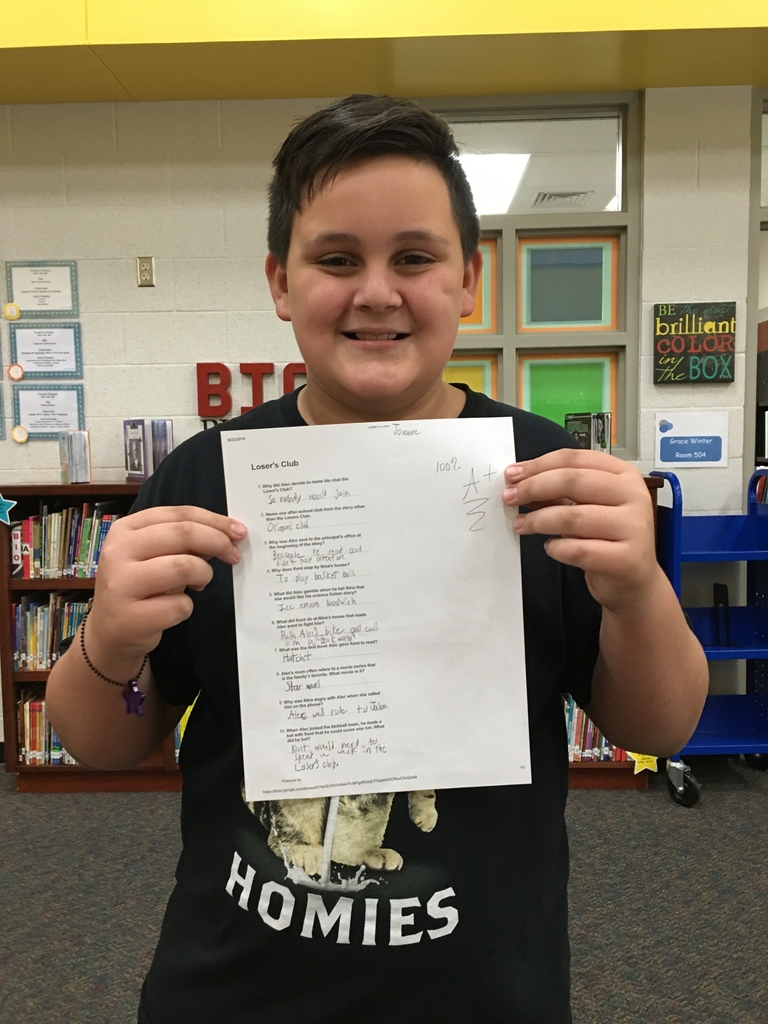 BIO
BE the
brilliant
COLOR
in the
BOX
Grace Winter
Room 504
BIO
Loser's Club
100%
A+
1. Why did Alec decide to name his club the
Loser's Club?
So nobody would join
2. Name one after-school club from the story other
than the Losers Club.
Origami club
3. Why was Alec sent to the principal's office at
the beginning of the story?
Because he read and
didn't pay attention
4. Why does Kent stop by Nina's house?
To play basket ball
5. What did Alec gamble when he bet Nina that
she would like his science fiction story?
Ice cream sandwich
6. What did Kent do at Nina's house that made
Alec want to fight him?
Alec's bike and call
him a bookworm
7. What was the first book Alec gave Kent to read?
Hatchet
8. Alec's mom often refers to a movie series that
is the family's favorite. What movie is it?
Star wars
9. Why was Nina angry with Alec when she called
him on the phone?
Alec was rude to
10. When Alec joined the kickball team, he made a
bet with Kent that he could score one run. What
did he bet?
Kent would need to
spent a week in the
Loser's club.
Powered by
HOMIES